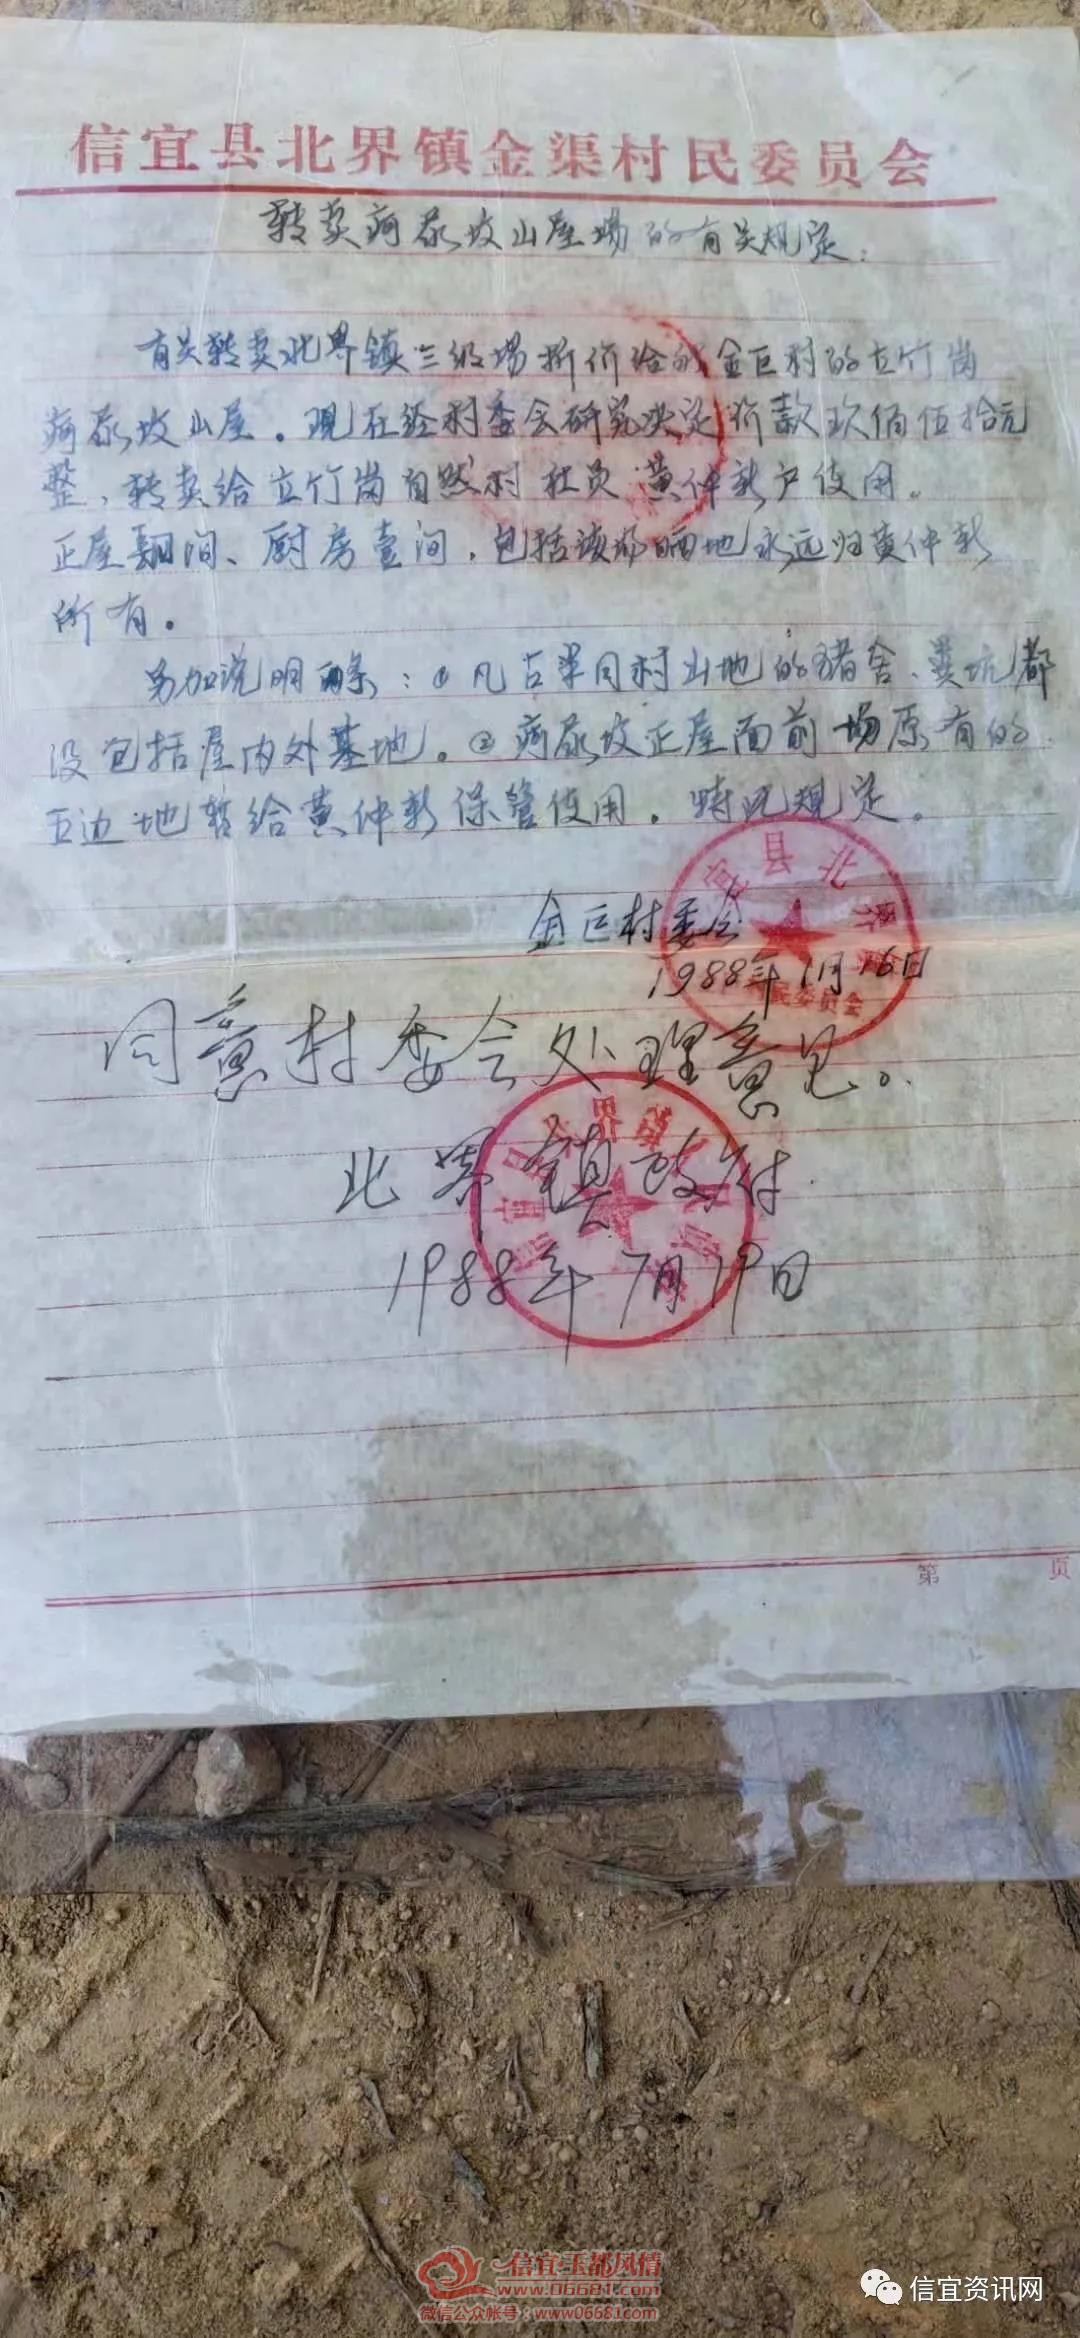 信宜县北界镇金渠村民委员会
转卖荷尿坟山屋场的有关规定:
有关转卖北界镇三级场折价给我金巨村的立竹岗
荷尿坟山屋。现在经村委会研究决定价款玖佰伍拾元
整,转卖给立竹岗自然村社员黄仲新户使用。
正屋 间、厨房壹间,包括该场晒地永远归黄仲新
所有。
另加说明 条:①凡占 同村山地的猪舍、粪坑都
没包括屋内外基地。②荷尿坟正屋面前场原有的
五边地暂给黄仲新保管使用。特此规定。
金巨村委会
1988年1月16日
同意村委会处理意见。
北界镇政府
1988年7月19日
第 页
信宜·玉都风情
www.06681.com
微信公众帐号:www06681com
信宜资讯网